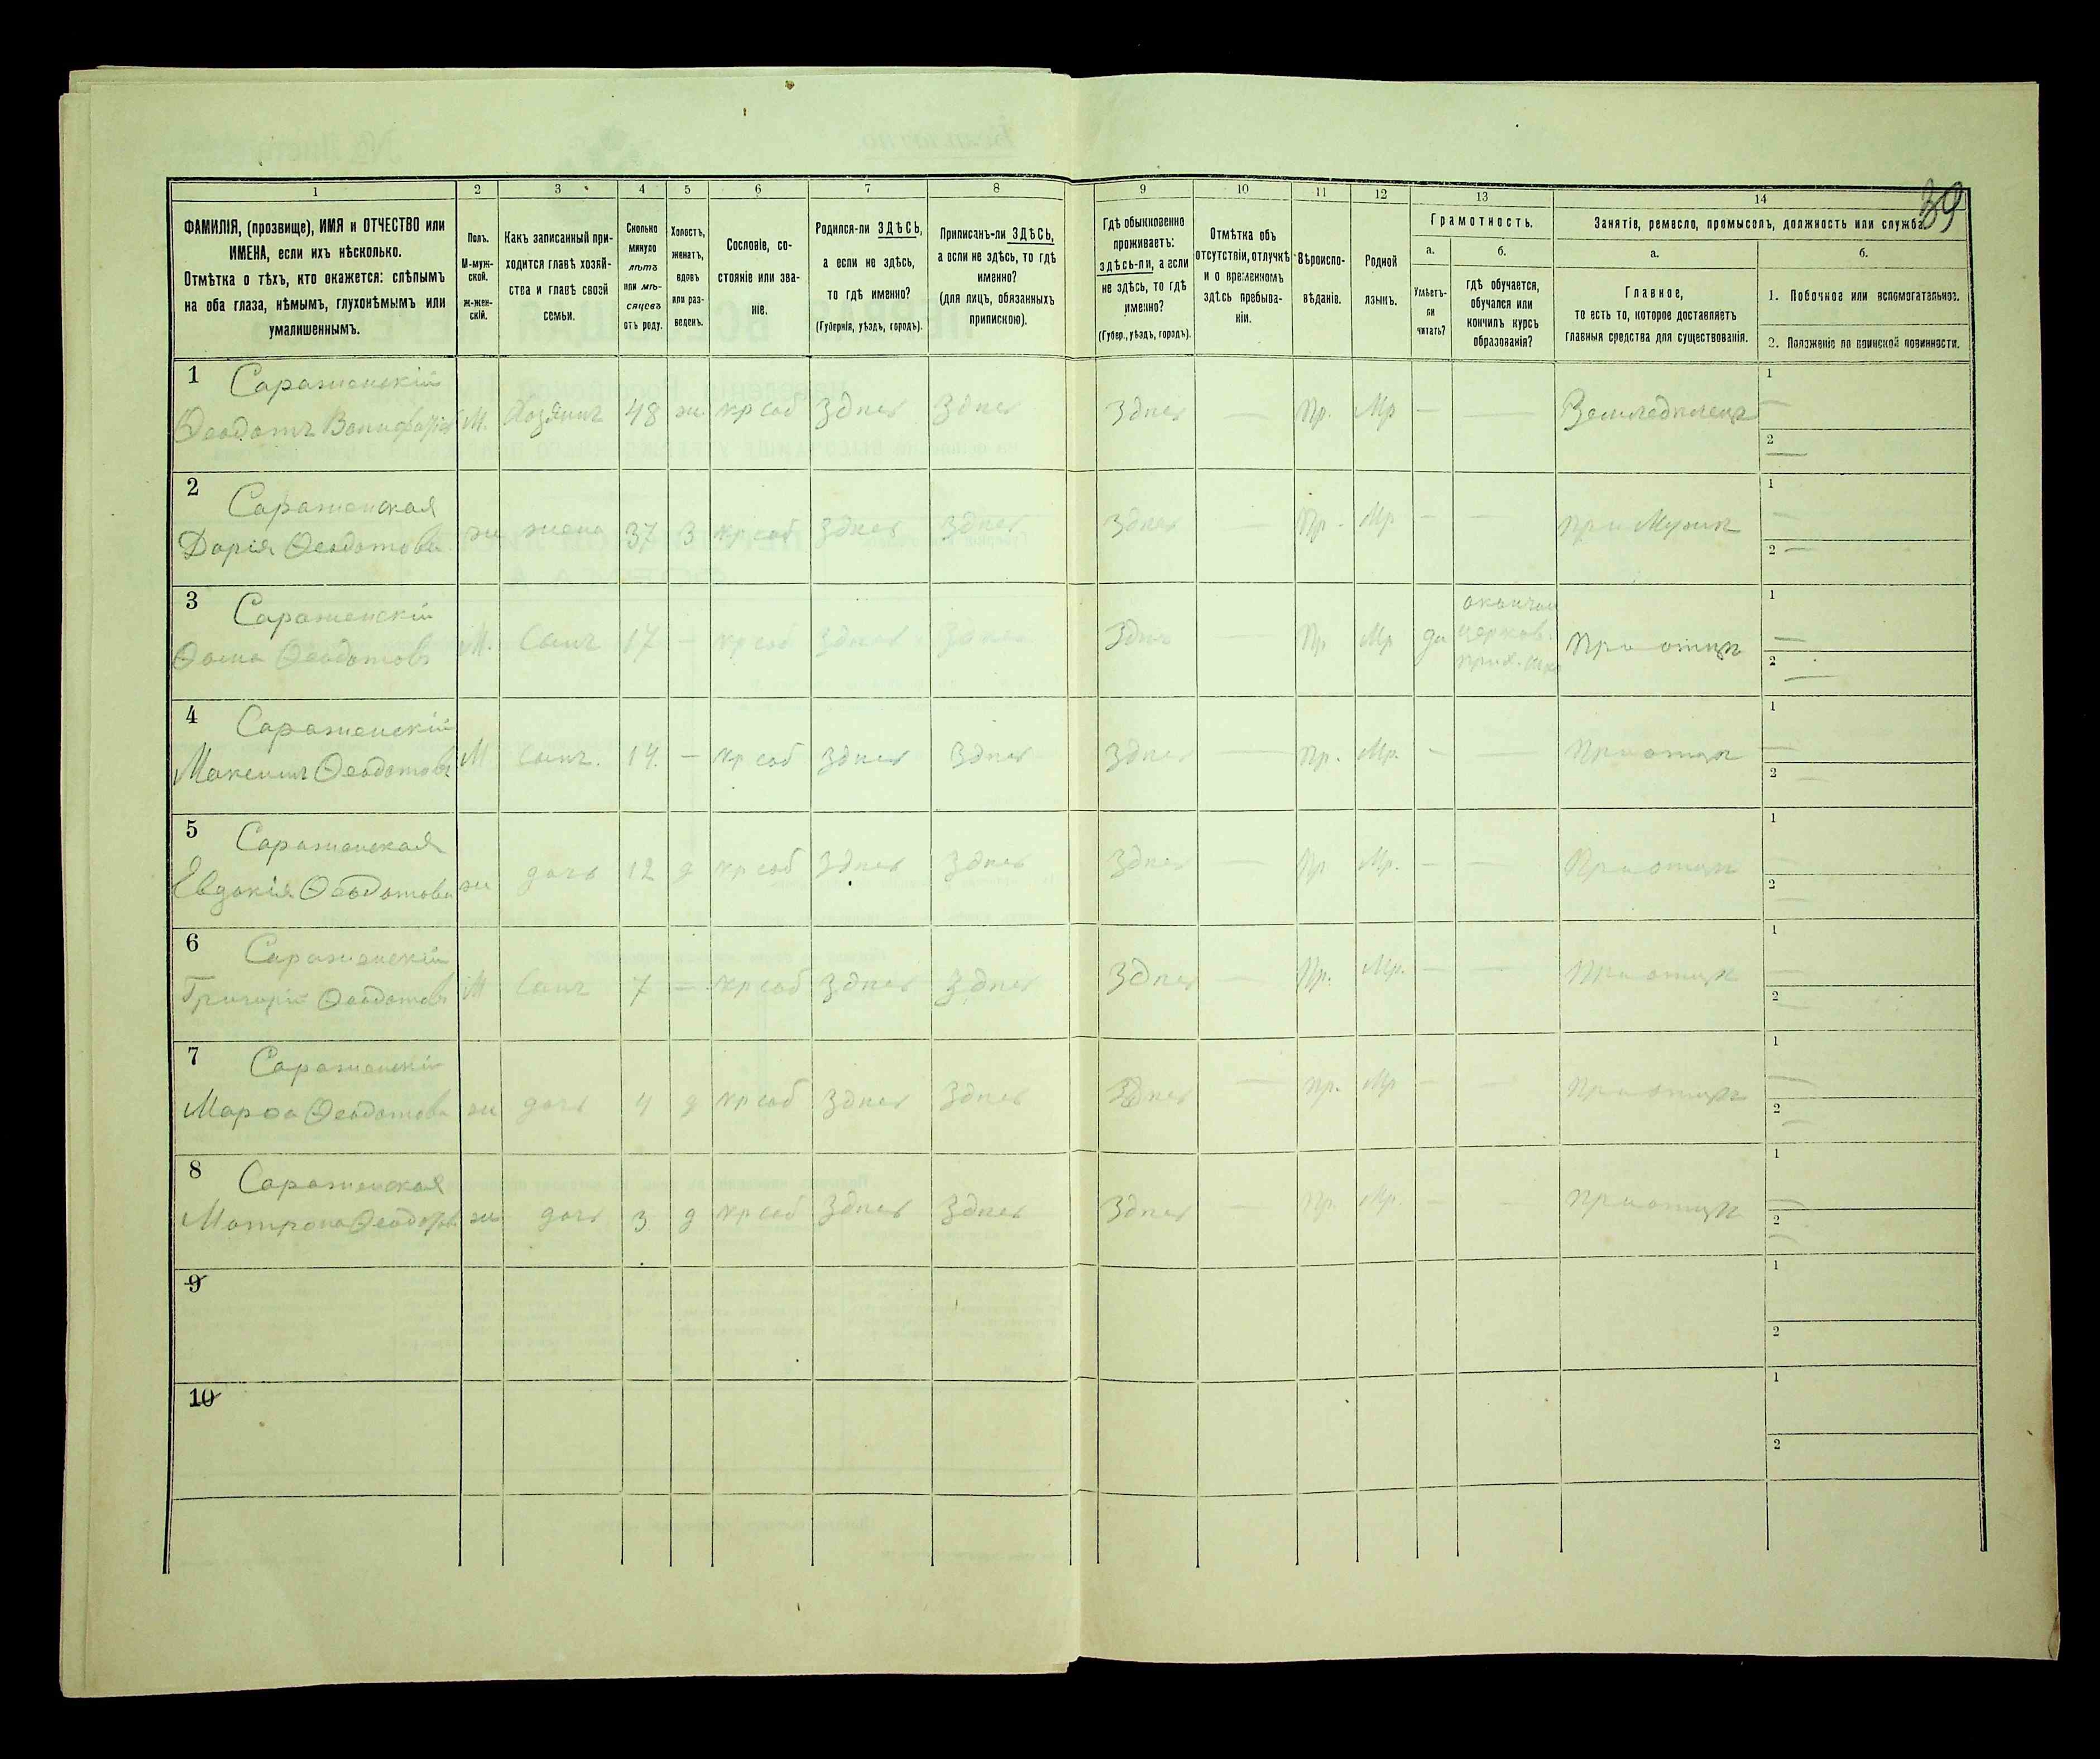 39
1 2 3 4 5 6 7 8 9 10 11 12 13 14
ФАМИЛІЯ, (прозвище), ИМЯ и ОТЧЕСТВО или
ИМЕНА, если ихъ нѣсколько.
Отмѣтка о тѣхъ, кто окажется: слѣпымъ
на оба глаза, нѣмымъ, глухонѣмымъ или
умалишеннымъ.
Полъ.
М-муж-
ской.
ж-жен-
скій.
Какъ записанный при-
ходится главѣ хозяй-
ства и главѣ своей
семьи.
Сколько
минуло
лѣтъ
или мѣ-
сяцевъ
отъ роду.
Холостъ,
женатъ,
вдовъ
или раз-
веденъ.
Сословіе, со-
стояніе или зва-
ніе.
Родился-ли ЗДѢСЬ,
а если не здѣсь,
то гдѣ именно?
(Губернія, уѣздъ, городъ).
Приписанъ-ли ЗДѢСЬ,
а если не здѣсь, то гдѣ
именно?
(для лицъ, обязанныхъ
припискою).
Гдѣ обыкновенно
проживаетъ:
здѣсь-ли, а если
не здѣсь, то гдѣ
именно?
(Губер., уѣздъ, городъ).
Отмѣтка объ
отсутствіи, отлучкѣ
и о временномъ
здѣсь пребыва-
ніи.
Вѣроиспо-
вѣданіе.
Родной
языкъ.
Грамотность.
а.
Умѣетъ-
ли
читать?
б.
гдѣ обучается,
обучался или
кончилъ курсъ
образованія?
Занятіе, ремесло, промыселъ, должность или служба.
а.
Главное,
то есть то, которое доставляетъ
главныя средства для существованія.
б.
1. Побочное или вспомогательное.
2. Положеніе по воинской повинности.
1 Сараженскій
Ѳеодотъ М. Хозяинъ 48 ж. кр соб Здѣсь Здѣсь Здѣсь — Пр. Мр — — Земледѣлецъ 1 — 2 —
2 Сараженская
Дарія Ѳеодотова ж жена 37 З кр соб Здѣсь Здѣсь Здѣсь — Пр. Мр — — При Мужѣ 1 — 2 —
3 Сараженскій
Ѳома Ѳеодотовъ М. Сынъ 17 — кр соб Здѣсь Здѣсь Здѣсь — Пр Мр да церков. При отцѣ 1 — 2 —
4 Сараженскій
Максимъ Ѳеодотовъ М сынъ. 14. — кр соб Здѣсь Здѣсь Здѣсь — Пр. Мр. — — При отцѣ 1 — 2 —
5 Сараженская
Евдокія Ѳеодотова ж дочь 12 д кр соб Здѣсь Здѣсь Здѣсь — Пр Мр. — — При отцѣ 1 — 2 —
6 Сараженскій
Григорій Ѳеодотовъ М Сынъ 7 — кр соб Здѣсь Здѣсь Здѣсь — Пр. Мр. — — При отцѣ 1 — 2 —
7 Сараженскій
Марѳа Ѳеодотова ж дочь 4 д кр соб Здѣсь Здѣсь Здѣсь — Пр. Мр — — При отцѣ 1 — 2 —
8 Сараженская
Матрона Ѳеодотов ж дочь 3 д кр соб Здѣсь Здѣсь Здѣсь — Пр. Мр. — — При отцѣ 1 — 2 —
9 1 2
10 1 2